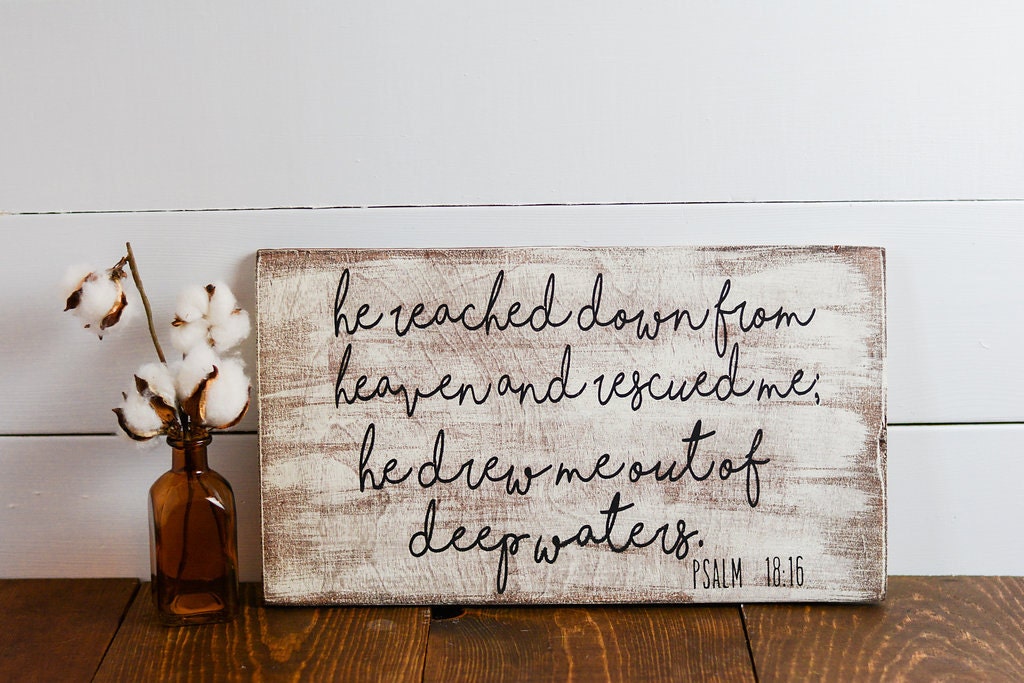 he reached down from
heaven and rescued me;
he drew me out of
deep waters.
PSALM 18:16